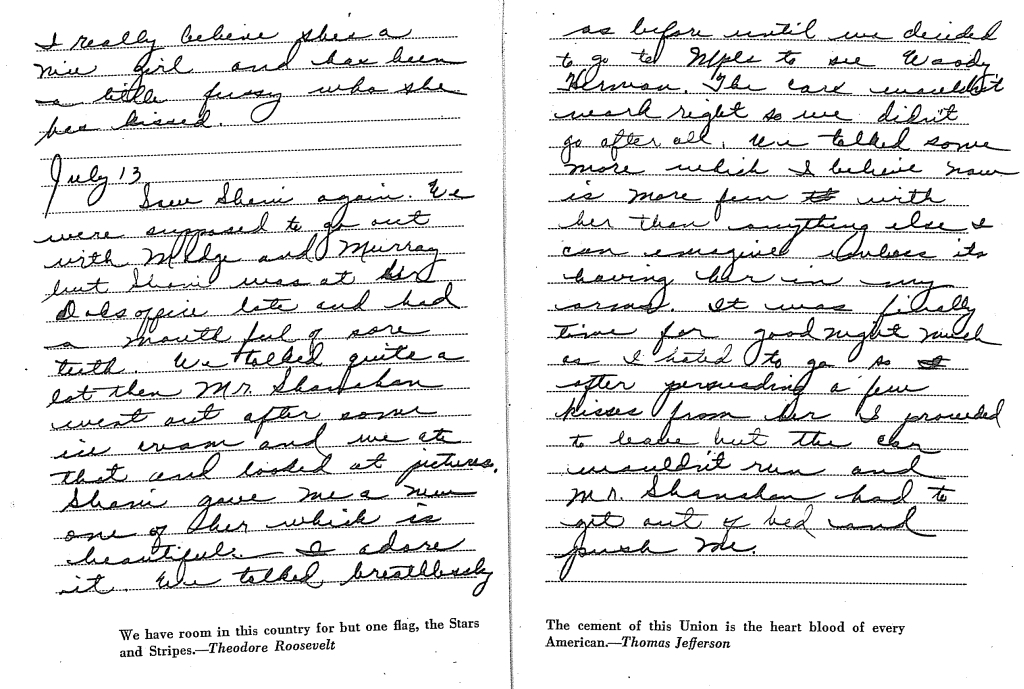 I really believe shes a
nice girl and has been
a little fussy who she
has kissed.
July 13
Saw Shani again. We
were supposed to go out
with Midge and Murray
but Shani was at
D.D.S office late and had
a mouth ful of sore
teeth. We talked quite a
lot then Mr. Shanahan
went out after some
ice cream and we ate
that and looked at pictures.
Shani gave me a new
one of her which is
beautiful. — I adore
it. We talked breathlessly
We have room in this country for but one flag, the Stars
and Stripes.—Theodore Roosevelt
as before until we decided
to go to Mpls to see Woody
Herman. The car wouldn't
work right so we didn't
go after all. We talked some
more which I believe now
is more fun with
her than anything else I
can emagine unless its
having her in my
arms. It was finally
time for good night much
as I hated to go so
after persuading a few
kisses from her I proceeded
to leave but the car
wouldn't run and
Mr. Shanahan had to
get out of bed and
push me.
The cement of this Union is the heart blood of every
American.—Thomas Jefferson